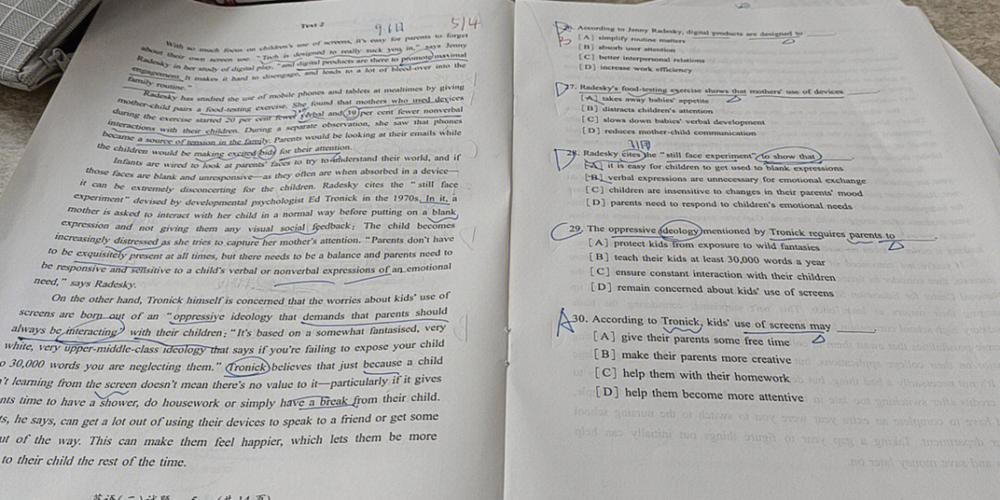 Text 2
9月6日
5/4
With so much focus on children's use of screens, it's easy for parents to forget
about their own screen use. "Tech is designed to really suck you in," says Jenny
Radesky in her study of digital play, "and digital products are there to promote maximal
engagement. It makes it hard to disengage, and leads to a lot of bleed-over into the
family routine."
Radesky has studied the use of mobile phones and tablets at mealtimes by giving
mother-child pairs a food-testing exercise. She found that mothers who used devices
during the exercise started 20 per cent fewer verbal and 39 per cent fewer nonverbal
interactions with their children. During a separate observation, she saw that phones
became a source of tension in the family. Parents would be looking at their emails while
the children would be making excited bids for their attention.
Infants are wired to look at parents' faces to try to understand their world, and if
those faces are blank and unresponsive—as they often are when absorbed in a device—
it can be extremely disconcerting for the children. Radesky cites the "still face
experiment" devised by developmental psychologist Ed Tronick in the 1970s. In it, a
mother is asked to interact with her child in a normal way before putting on a blank
expression and not giving them any visual social feedback: The child becomes
increasingly distressed as she tries to capture her mother's attention. "Parents don't have
to be exquisitely present at all times, but there needs to be a balance and parents need to
be responsive and sensitive to a child's verbal or nonverbal expressions of an emotional
need," says Radesky.
On the other hand, Tronick himself is concerned that the worries about kids' use of
screens are born out of an "oppressive ideology that demands that parents should
always be interacting" with their children: "It's based on a somewhat fantasised, very
white, very upper-middle-class ideology that says if you're failing to expose your child
o 30,000 words you are neglecting them." Tronick believes that just because a child
't learning from the screen doesn't mean there's no value to it—particularly if it gives
nts time to have a shower, do housework or simply have a break from their child.
ts, he says, can get a lot out of using their devices to speak to a friend or get some
ut of the way. This can make them feel happier, which lets them be more
to their child the rest of the time.
D
B
According to Jenny Radesky, digital products are designed to
[A] simplify routine matters
[B] absorb user attention
[C] better interpersonal relations
[D] increase work efficiency
D
27. Radesky's food-testing exercise shows that mothers' use of devices
[A] takes away babies' appetite
[B] distracts children's attention
[C] slows down babies' verbal development
[D] reduces mother-child communication
引用
D
28. Radesky cites the "still face experiment" to show that
[A] it is easy for children to get used to blank expressions
[B] verbal expressions are unnecessary for emotional exchange
[C] children are insensitive to changes in their parents' mood
[D] parents need to respond to children's emotional needs
C
29. The oppressive ideology mentioned by Tronick requires parents to
[A] protect kids from exposure to wild fantasies
[B] teach their kids at least 30,000 words a year
[C] ensure constant interaction with their children
[D] remain concerned about kids' use of screens
A
30. According to Tronick, kids' use of screens may
[A] give their parents some free time
[B] make their parents more creative
[C] help them with their homework
[D] help them become more attentive